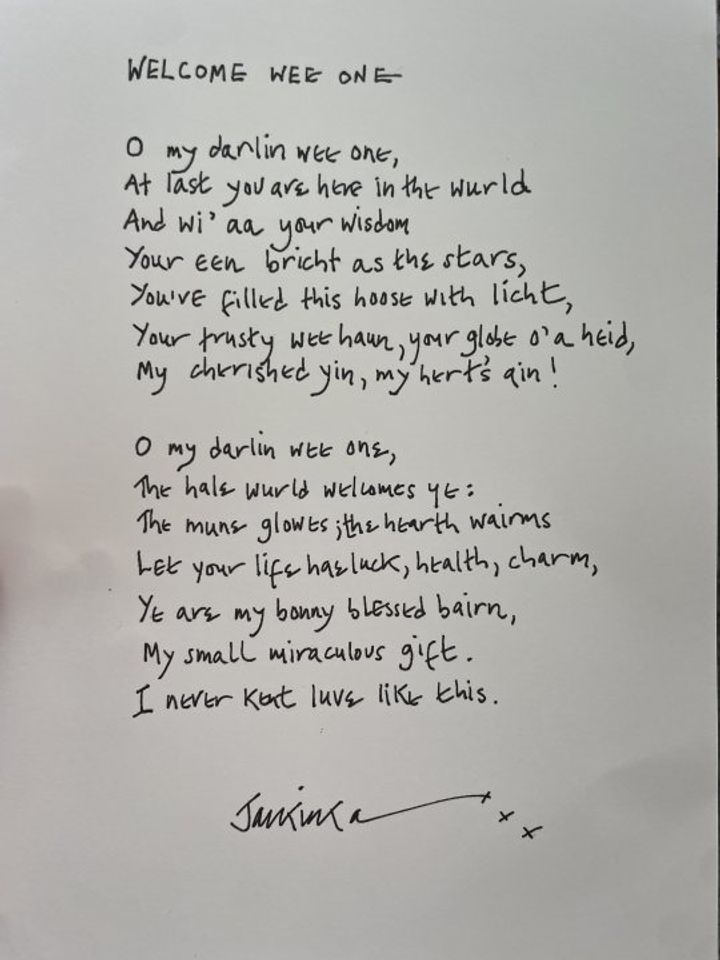 WELCOME WEE ONE
O my darlin wee one,
At last you are here in the wurld
And wi' aa your wisdom
Your een bricht as the stars,
You've filled this hoose with licht,
Your trusty wee haun, your globe o' a heid,
My cherished yin, my hert's ain!
O my darlin wee one,
The hale wurld welcomes ye:
The mune glowes; the hearth wairms
Let your life hae luck, health, charm,
Ye are my bonny blessed bairn,
My small miraculous gift.
I never kent luve like this.
x x x